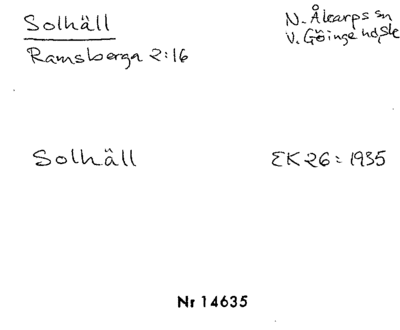 Solhäll
Ramsberga 2:16
N. Åkarps sn
V. Göinge hd, Sk
Solhäll
EK 26: 1935
Nr 14635